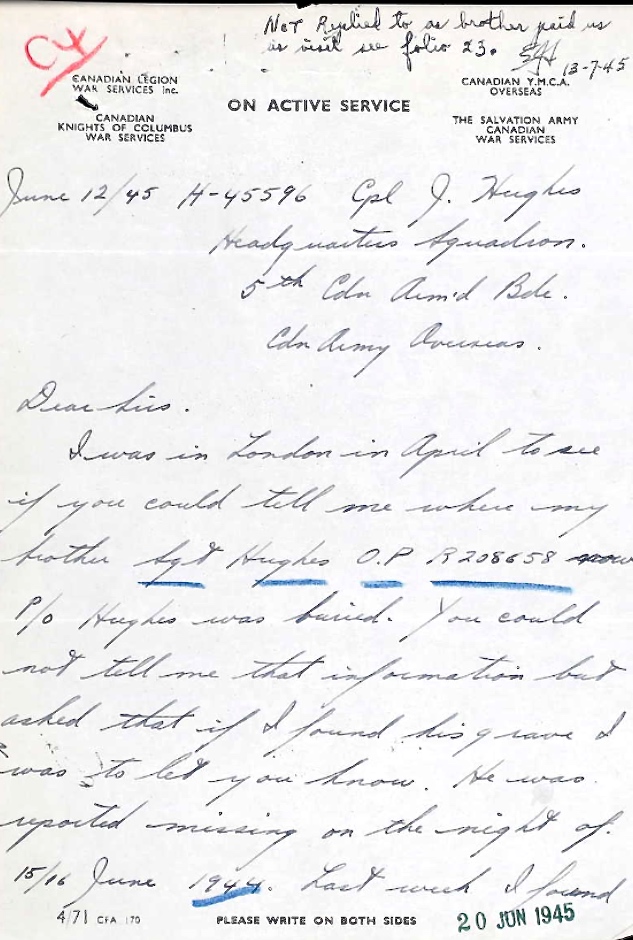 Not Replied to as brother paid us
as visit see folio 23.
13-7-45
CANADIAN LEGION
WAR SERVICES Inc.
CANADIAN
KNIGHTS OF COLUMBUS
WAR SERVICES
ON ACTIVE SERVICE
CANADIAN Y.M.C.A.
OVERSEAS
THE SALVATION ARMY
CANADIAN
WAR SERVICES
June 12/45 H-45596 Cpl J. Hughes
Headquarters Squadron.
5th Cdn Arm'd Bde.
Cdn Army Overseas.
Dear Sirs.
I was in London in April to see
if you could tell me where my
brother Sgt Hughes O.P R208658 now
P/O Hughes was buried. You could
not tell me that information but
asked that if I found his grave I
was to let you know. He was
reported missing on the night of.
15/16 June 1944. Last week I found
4/71 CFA 170
PLEASE WRITE ON BOTH SIDES
20 JUN 1945